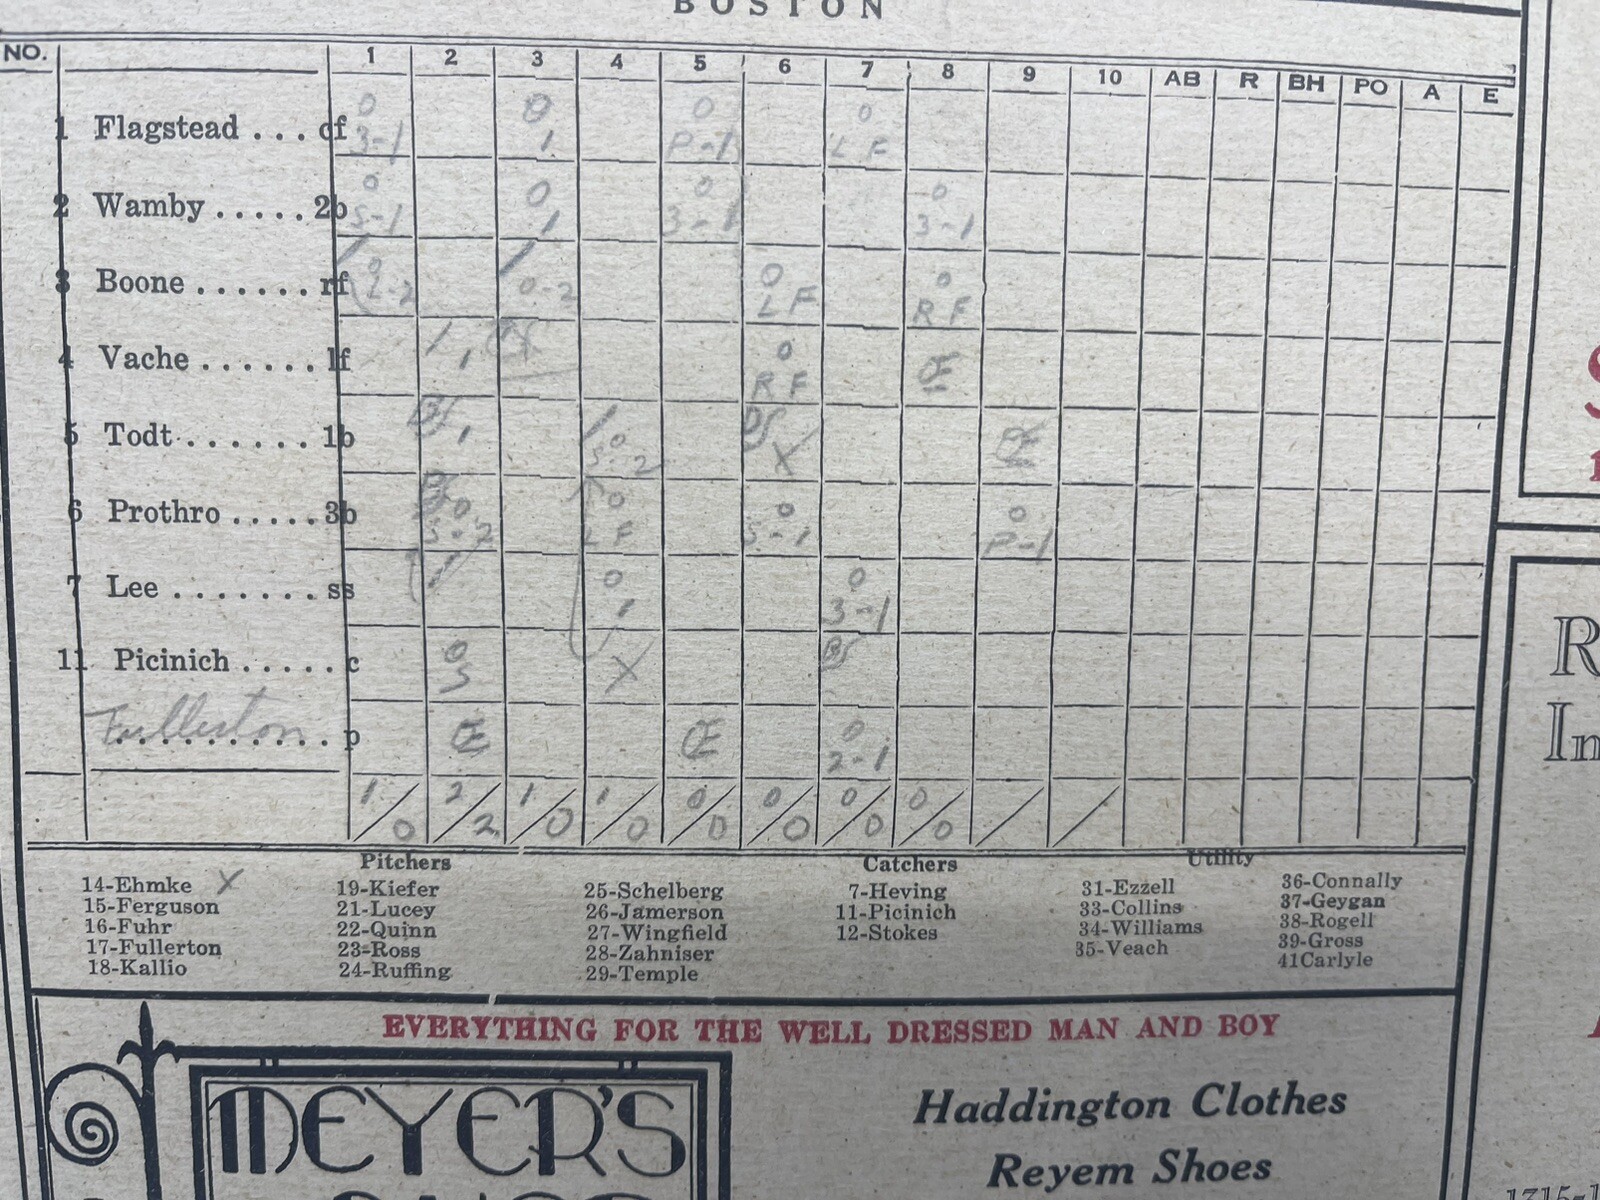 BOSTON
NO. 1 2 3 4 5 6 7 8 9 10 AB R BH PO A E
1 Flagstead . . . cf 0 3-1 0 1 0 P-1 0 L F
2 Wamby . . . . . 2b 0 S-1 0 1 0 3-1 0 3-1
3 Boone . . . . . . rf 0 2-2 0-2 0 L F 0 R F
4 Vache . . . . . . lf 0 R F
5 Todt . . . . . . . 1b 0 S-2 X
6 Prothro . . . . . 3b 0 S-2 0 L F 0 S-1 0 P-1
7 Lee . . . . . . . . ss 0 1 0 3-1
11 Picinich . . . . . c 0 S X
Fullerton . . . . . . . . . . p 0 2-1
1/0 2/2 1/0 1/0 0/0 0/0 0/0 0/0
Pitchers Catchers Utility
14-Ehmke X 19-Kiefer 25-Schelberg 7-Heving 31-Ezzell 36-Connally
15-Ferguson 21-Lucey 26-Jamerson 11-Picinich 33-Collins 37-Geygan
16-Fuhr 22-Quinn 27-Wingfield 12-Stokes 34-Williams 38-Rogell
17-Fullerton 23-Ross 28-Zahniser 35-Veach 39-Gross
18-Kallio 24-Ruffing 29-Temple 41Carlyle
EVERYTHING FOR THE WELL DRESSED MAN AND BOY
MEYER'S
Haddington Clothes
Reyem Shoes